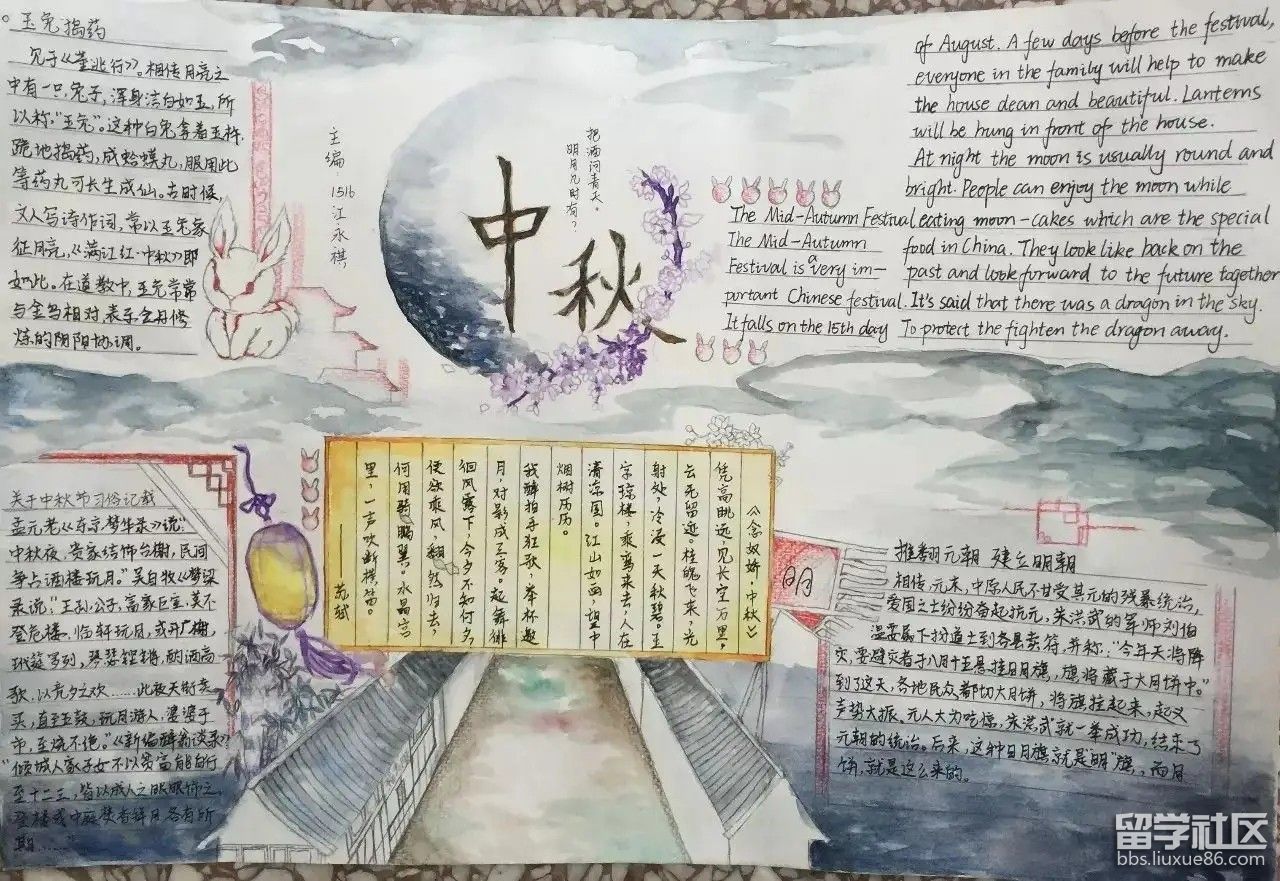 玉兔捣药
见于《董逃行》。相传月亮之
中有一只兔子，浑身洁白如玉，所
以称“玉兔”。这种白兔拿着玉杵，
跪地捣药，成蛤蟆丸，服用此
等药丸可长生成仙。古时候，
文人写诗作词，常以玉兔象
征月亮，《满江红·中秋》即
如此。在道教中，玉兔常常
与金乌相对，表示金丹修
炼的阴阳协调。
主编：1516江永祺
把酒问青天。
明月几时有？
中秋
The Mid-Autumn Festival
The Mid-Autumn
Festival is a very im-
portant Chinese festival.
It falls on the 15th day
of August. A few days before the festival,
everyone in the family will help to make
the house dean and beautiful. Lanterns
will be hung in front of the house.
At night the moon is usually round and
bright. People can enjoy the moon while
eating moon-cakes which are the special
food in China. They look like back on the
past and look forward to the future together
It's said that there was a dragon in the sky.
To protect the fighten the dragon away.
关于中秋节习俗记载
孟元老《东京梦华录》说：“
中秋夜，贵家结饰台榭，民间
争占酒楼玩月。”吴自牧《梦粱
录说：“王孙公子，富家巨室，莫不
登危楼，临轩玩月，或开广榭，
玳筵罗列，琴瑟铿锵，酌酒高
歌，以竞夕之欢……此夜天街卖
买，直至五鼓，玩月游人，婆婆于
市，至烧不绝。”《新编醉翁谈录》
“倾城人家子女不以贫富能自行
至十二三，皆以成人之服服饰之，
登楼或中庭焚香拜月，各有所
期……”
《念奴娇·中秋》
凭高眺远，见长空万里，
云无留迹。桂魄飞来，光
射处，冷浸一天秋碧。玉
宇琼楼，乘鸾来去，人在
清凉国。江山如画，望中
烟树历历。
我醉拍手狂歌，举杯邀
月，对影成三客。起舞徘
徊风露下，今夕不知何夕，
便欲乘风，翻然归去，
何用骑鹏翼。水晶宫
里，一声吹断横笛。
——苏轼
明
推翻元朝 建立明朝
相传，元末，中原人民不甘受其元的残暴统治，
爱国之士纷纷奋起抗元，朱洪武的军师刘伯
温委属下扮道士到各县卖符，并称：“今年天将降
灾，要避灾者于八月十五晨挂日月旗，旗将藏于大月饼中。”
到了这天，各地民众都切大月饼，将旗挂起来，起义
声势大振，元人大为吃惊，朱洪武就一举成功，结束了
元朝的统治。后来，这种日月旗就是明”旗，而月
饼，就是这么来的。
留学社区
bbs.liuxue86.com